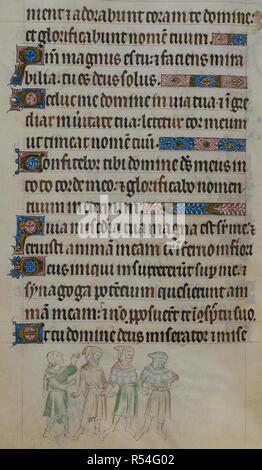 nient et adorabunt coram te domine:
et glorificabunt nomen tuum.
Qm magnus es tu: et faciens mira
bilia: tu es deus solus.
Deduc me domine in uia tua: et ingre
diar in ueritate tua: letetur cor meum
ut timeat nomen tuum.
Confitebor tibi domine deus meus in
toto corde meo: et glorificabo nomen
tuum in
Quia misericordia tua magna est super me: et
eruisti animam meam ex inferno inferiori
Deus iniqui insurrexerunt super me: et
synagoga potencium quesierunt ani
mam meam: et non proposuerunt te in conspectu suo.
Et tu domine deus miserator et mise
alamy
Image ID: R54G02
www.alamy.com